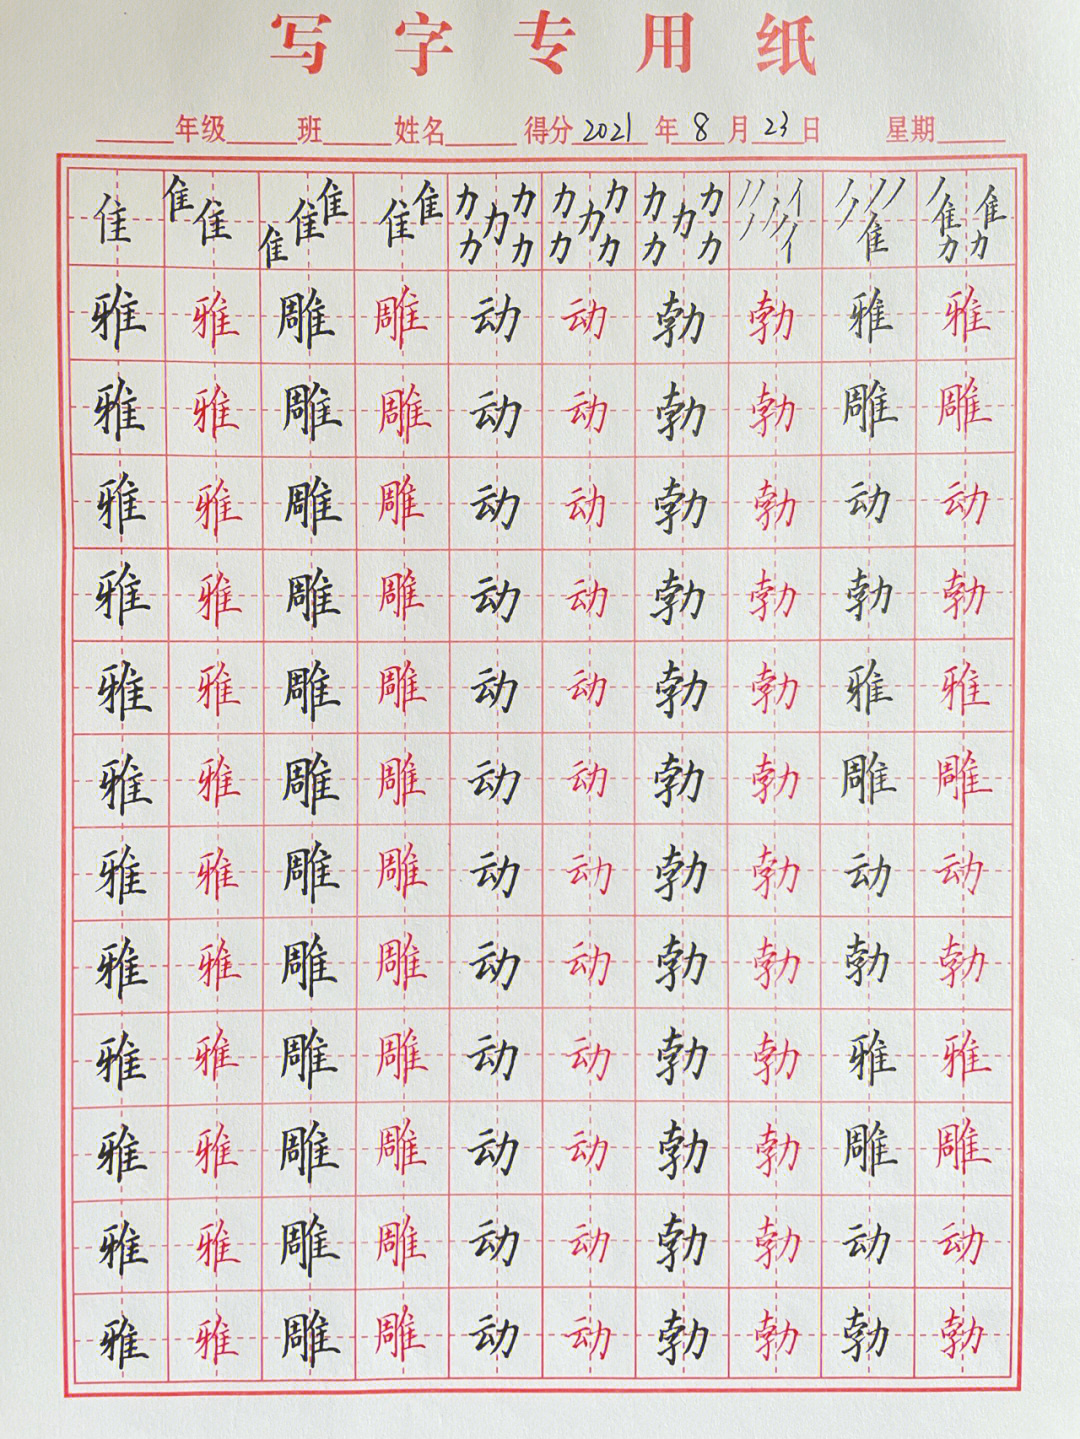 写字专用纸
年级 班 姓名 得分 2021 年 8 月 23 日 星期
隹 隹 隹 隹 隹 隹 隹 隹 力 力 力 力 力 力 力 力 力 力 力 力 力 力 力 隹 隹 力 隹 力
雅 雅 雕 雕 动 动 勃 勃 雅 雅
雅 雅 雕 雕 动 动 勃 勃 雕 雕
雅 雅 雕 雕 动 动 勃 勃 动 动
雅 雅 雕 雕 动 动 勃 勃 勃 勃
雅 雅 雕 雕 动 动 勃 勃 雅 雅
雅 雅 雕 雕 动 动 勃 勃 雕 雕
雅 雅 雕 雕 动 动 勃 勃 动 动
雅 雅 雕 雕 动 动 勃 勃 勃 勃
雅 雅 雕 雕 动 动 勃 勃 雅 雅
雅 雅 雕 雕 动 动 勃 勃 雕 雕
雅 雅 雕 雕 动 动 勃 勃 动 动
雅 雅 雕 雕 动 动 勃 勃 勃 勃